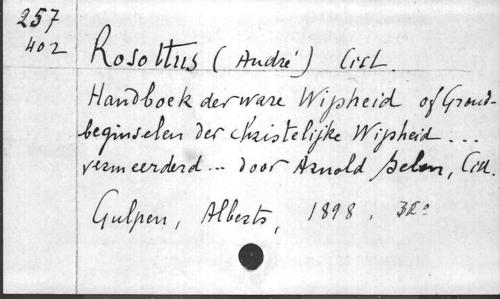 257
402
Rosottus (André) Cist.
Handboek der ware Wijsheid of Grond-
beginselen der Christelijke Wijsheid ...
vermeerderd ... door Arnold Selen, Cist.
Gulpen, Alberts, 1898, 32°